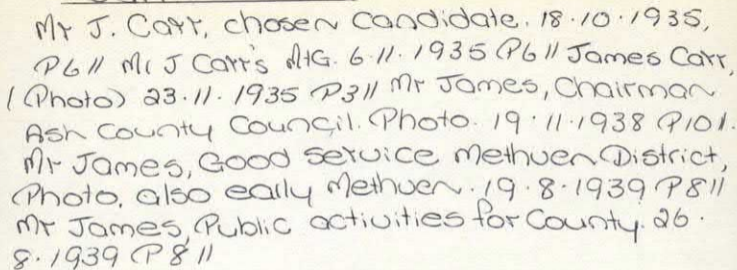 Mr J. Carr, chosen candidate. 18.10.1935,
P6 // Mr J Carr's Mtg. 6.11.1935 P6 // James Carr,
(Photo) 23.11.1935 P3 // Mr James, Chairman
Ash County Council. Photo. 19.11.1938 P10 /.
Mr James, Good service Methven District,
Photo, also early Methven. 19.8.1939 P8 //
Mr James, Public activities for County. 26.
8.1939 P8 //